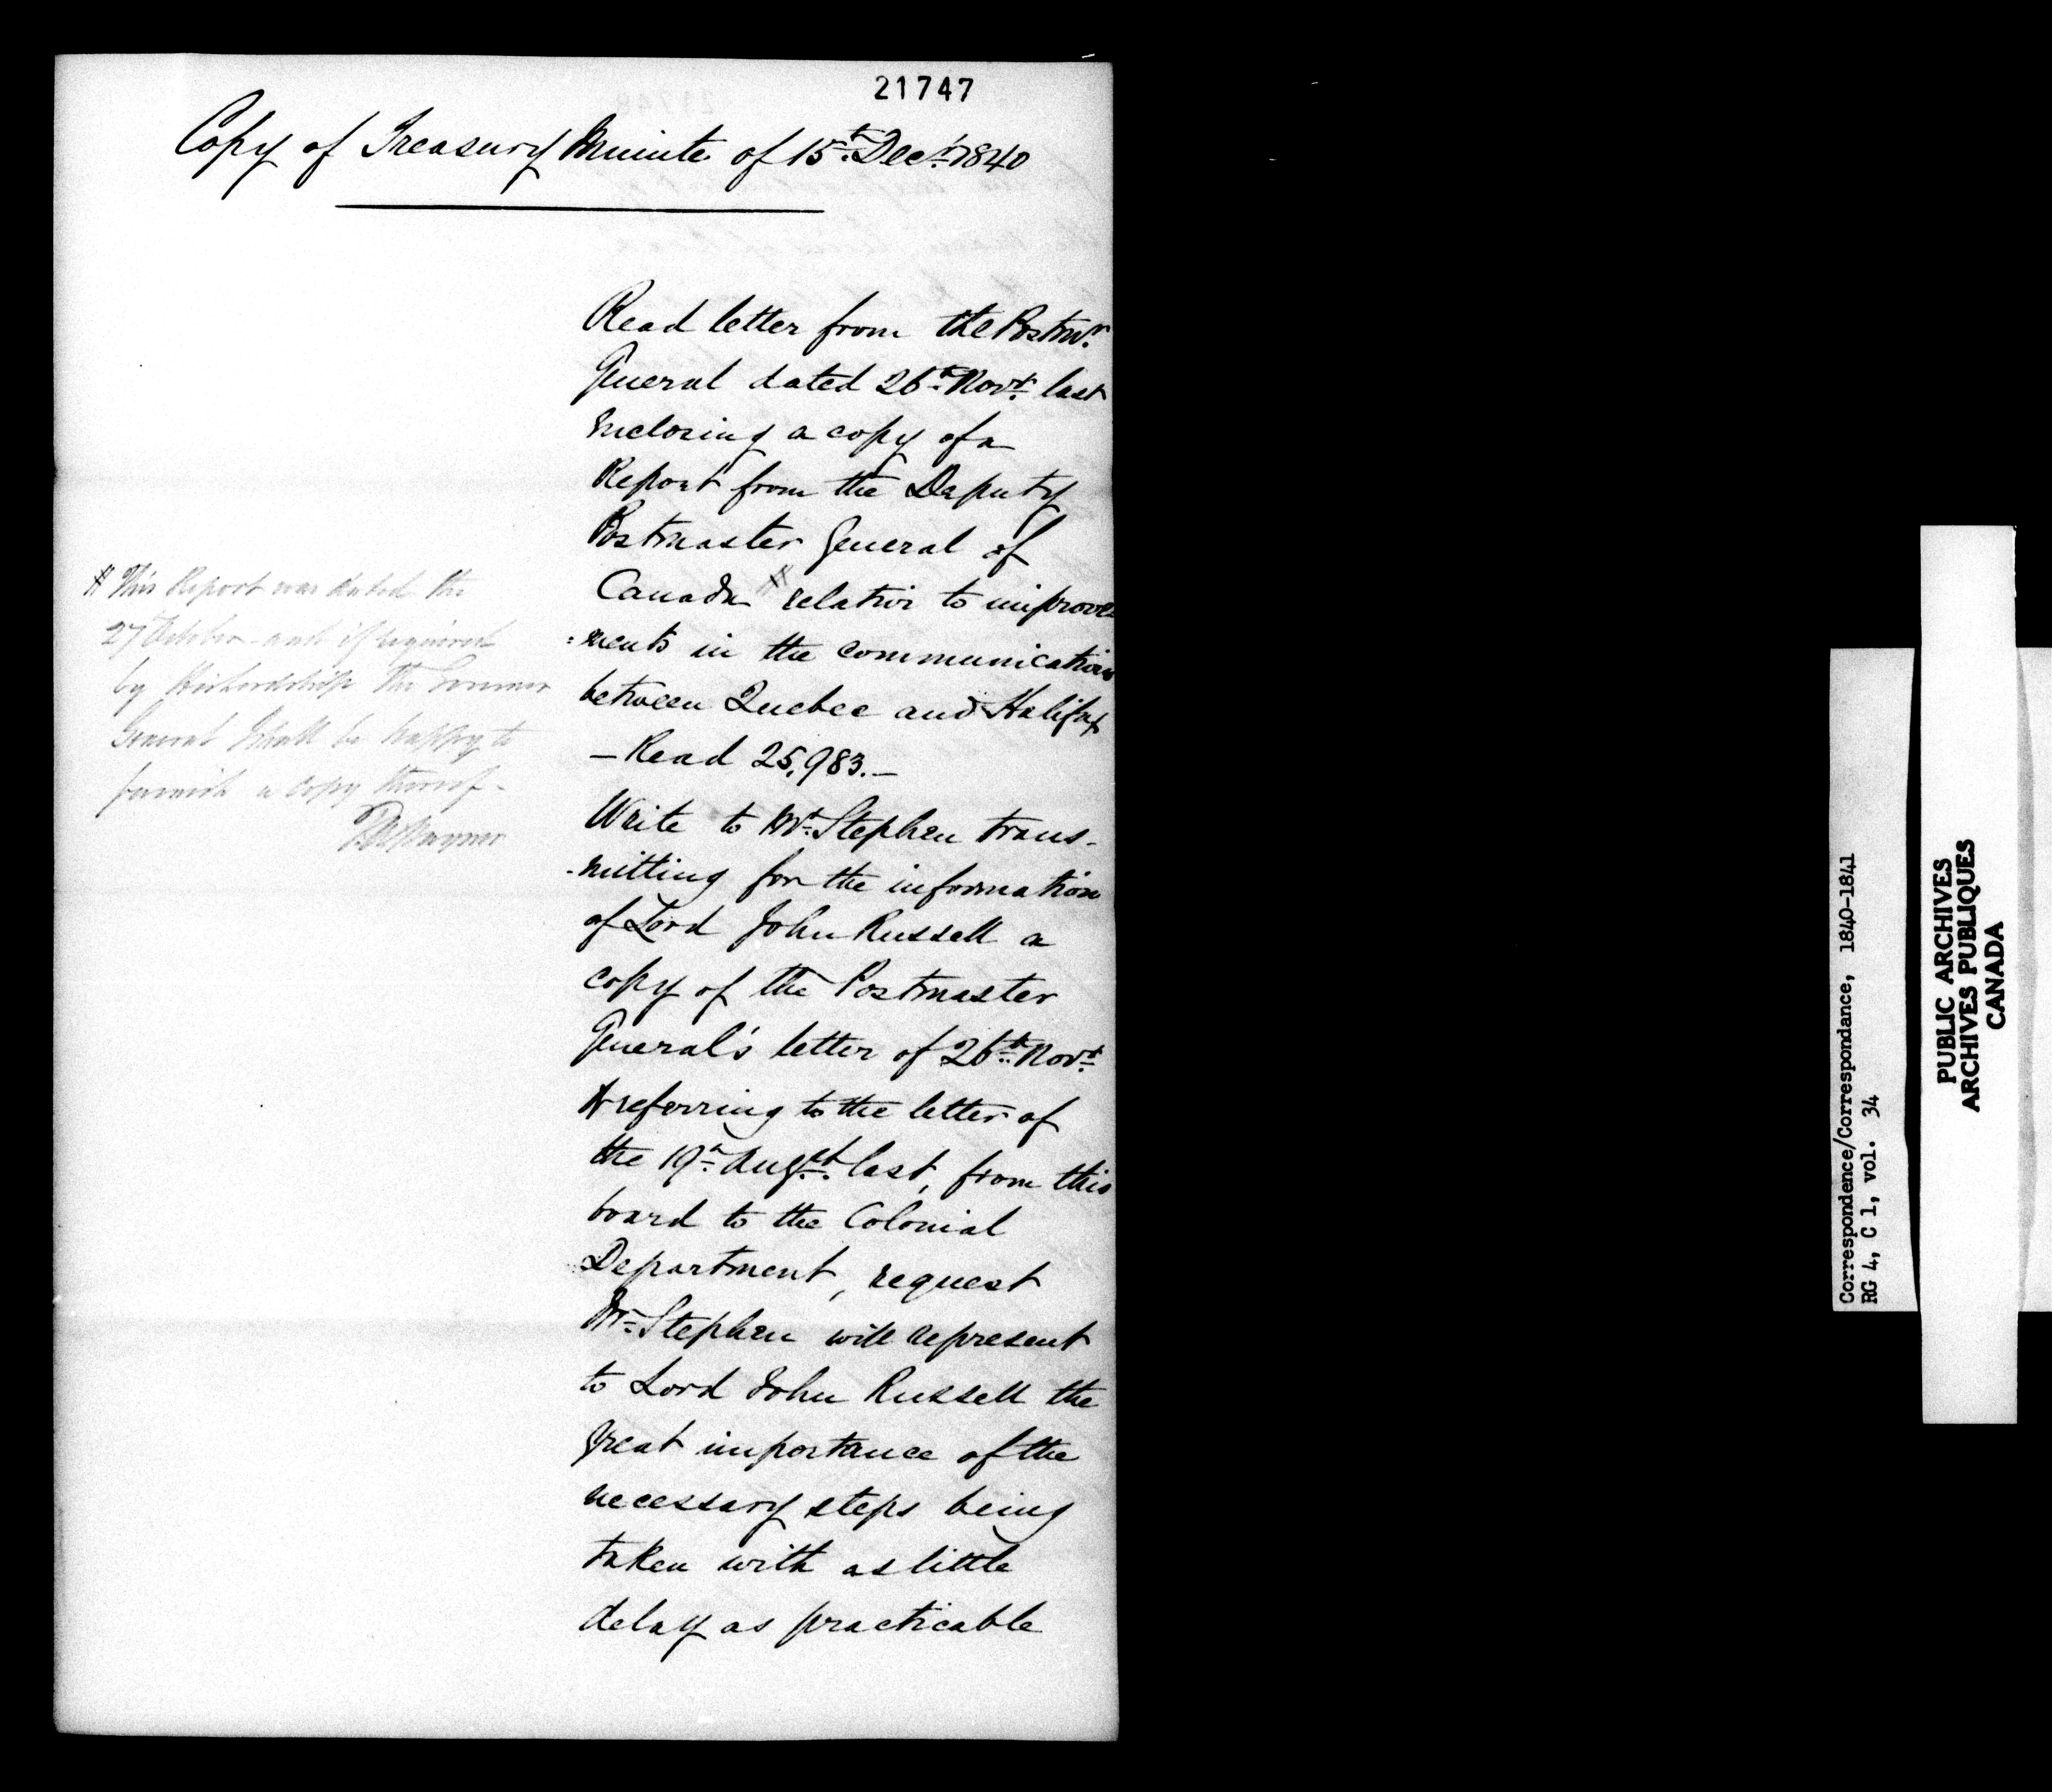 21747
Copy of Treasury Minute of 15th Decr. 1840
Read letter from the Postmr.
General dated 26th Novr. last
inclosing a copy of a
Report from the Deputy
Postmaster General of
Canada # relative to improve
=ments in the communication
between Quebec and Halifax
— Read 25,983. —
Write to Mr. Stephen trans-
-mitting for the information
of Lord John Russell a
copy of the Postmaster
General's letter of 26th Novr.
& referring to the letter of
the 19th Augst. last, from this
board to the Colonial
Department, request
Mr. Stephen will represent
to Lord John Russell the
great importance of the
necessary steps being
taken with as little
delay as practicable
# This Report was dated the
27 October and if required
by His Lordship the Governor
General I shall be happy to
furnish a copy thereof -
Correspondence/Correspondance, 1840-1841
RG 4, C 1, vol. 34
PUBLIC ARCHIVES
ARCHIVES PUBLIQUES
CANADA